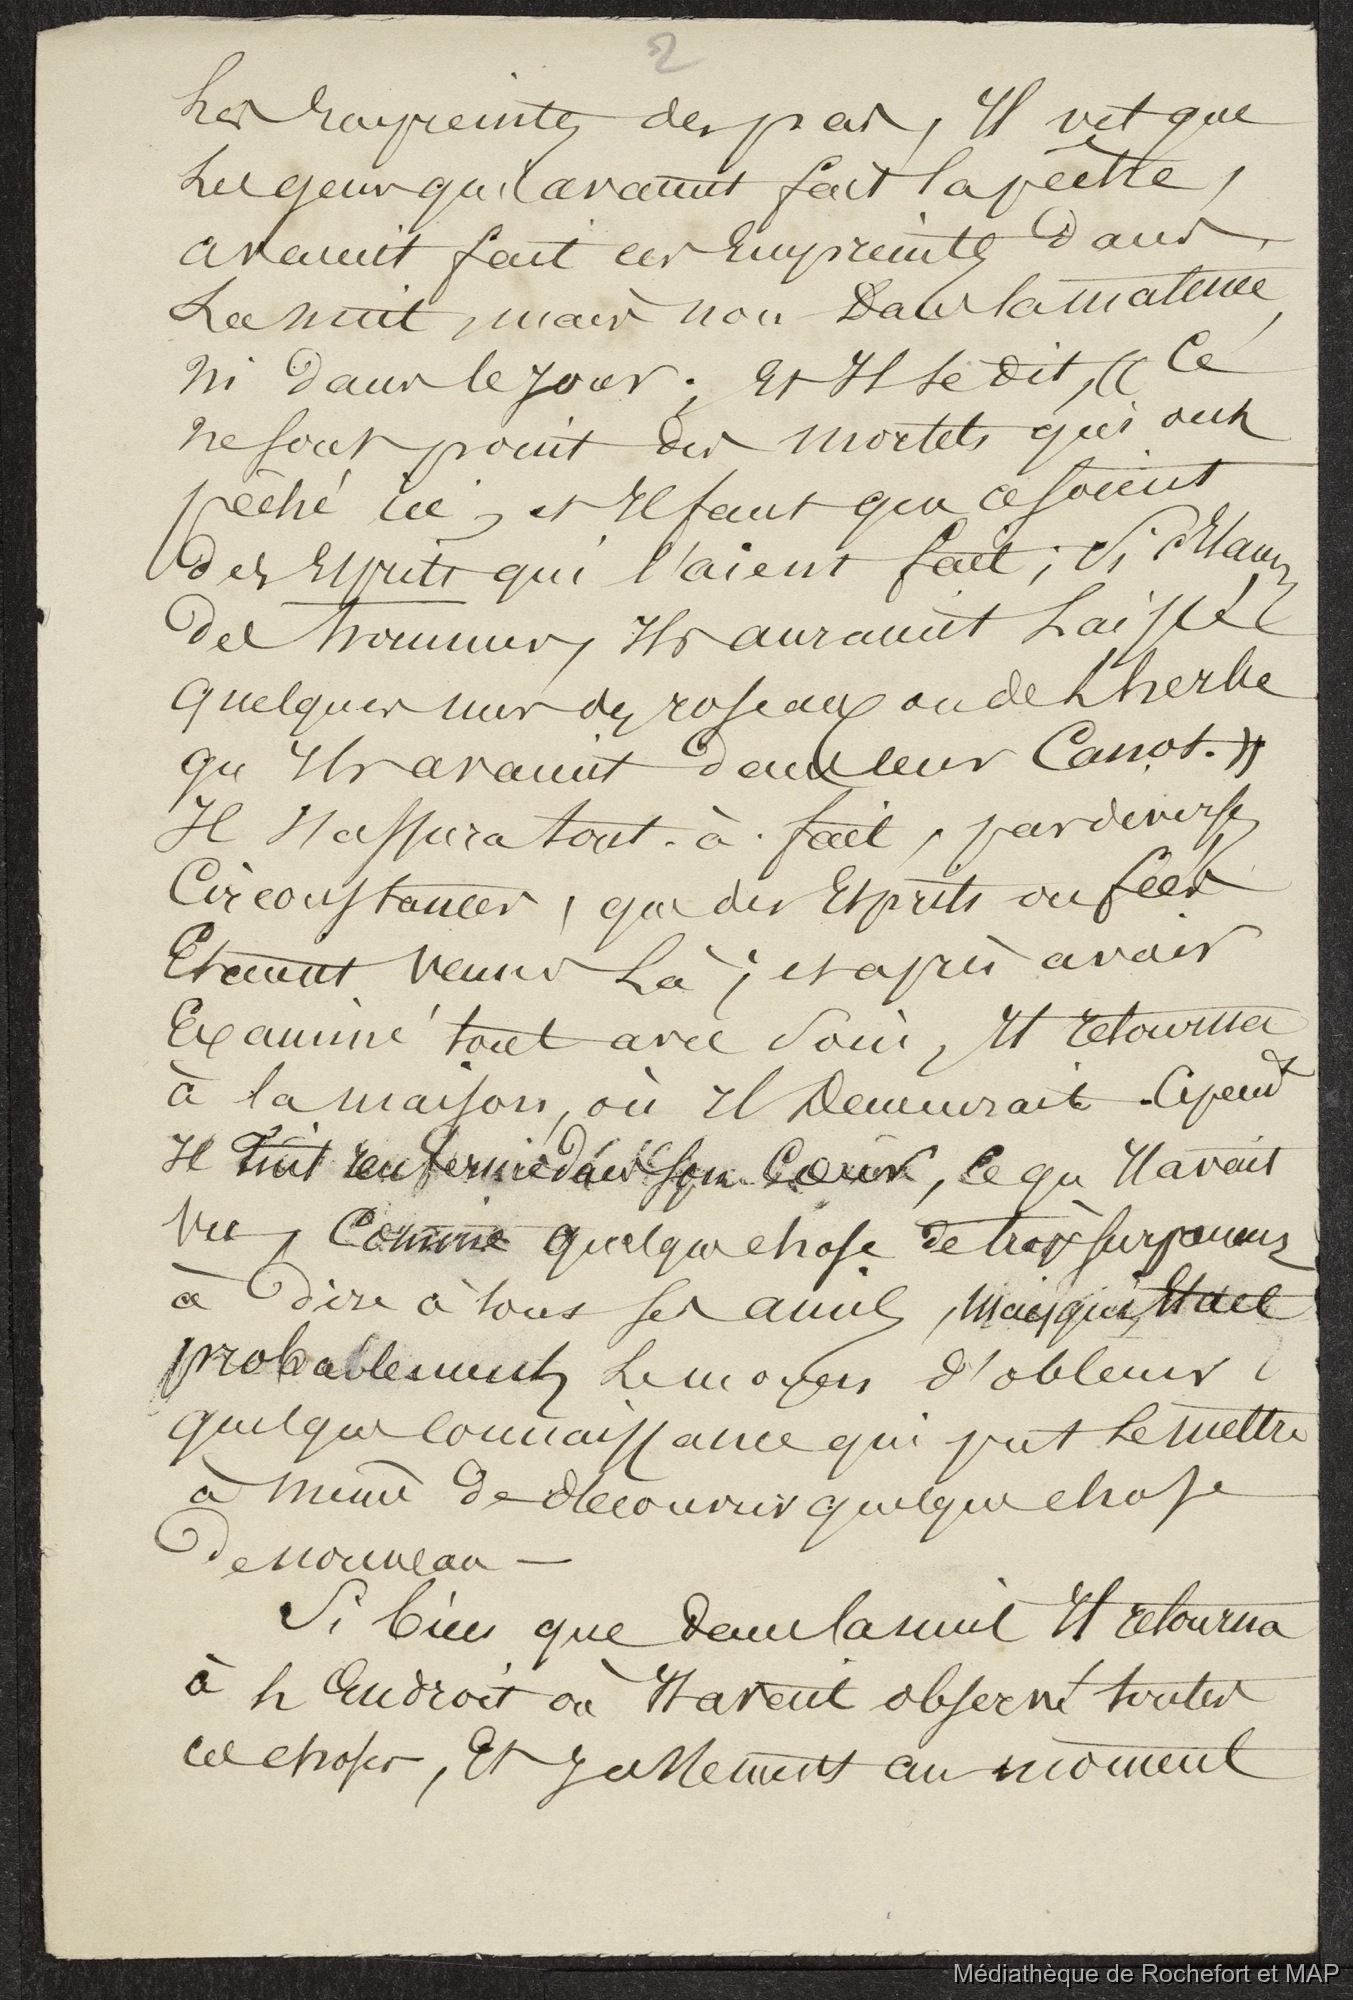 2
Les Empreintes des pas, Il vit que
Les gens qui avaient fait la pêche,
avaient fait ces Empreintes Dans
La nuit, mais non Dans la matinée,
Ni Dans le jour ; Et Il se dit, « Ce
ne sont point des mortels qui ont
pêché ici, et Il faut que ce soient
des Esprits qui l'aient fait ; Si c'Etaient
des hommes, Ils auraient Laissé
quelques uns des roseaux ou de L'herbe
qu'Ils avaient dans leur Canot. »
Il s'assura tout-à-fait, par diverses
Circonstances, que des Esprits ou fées
Etaient venus Là ; et après avoir
Examiné tout avec Soin, Il retourna
à la maison, où Il Demeurait. Cepend^t
Il Tint renfermé dans son Cœur, Ce qu'Il avait
vu, Comme quelque chose de trop surprenant
à Dire à tous ses amis, Mais qui Etait
probablement Le moyen d'obtenir
quelque connaissance qui put Le mettre
à même de découvrir quelque chose
De nouveau —
Si bien que Dans la nuit Il retourna
à L'Endroit où Il avait observé toutes
ces choses, Et justement au moment
Médiathèque de Rochefort et MAP